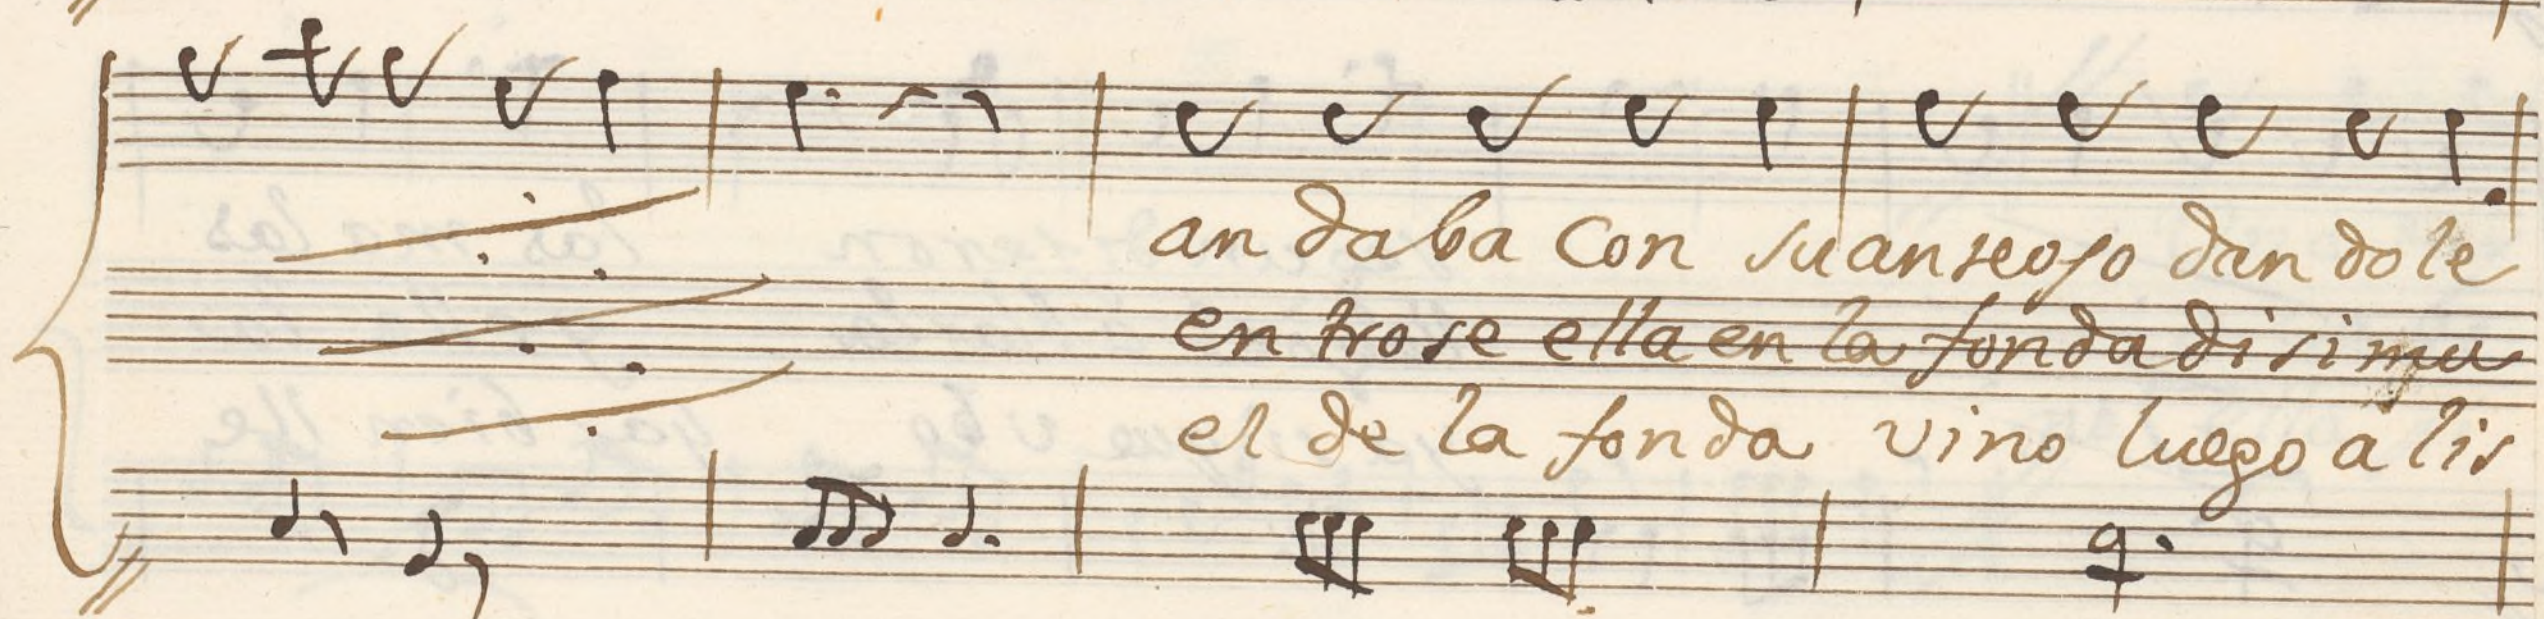 an daba Con su an seoso dan dole
en trose ella en la fonda disimu
el de la fonda vino luego a lis